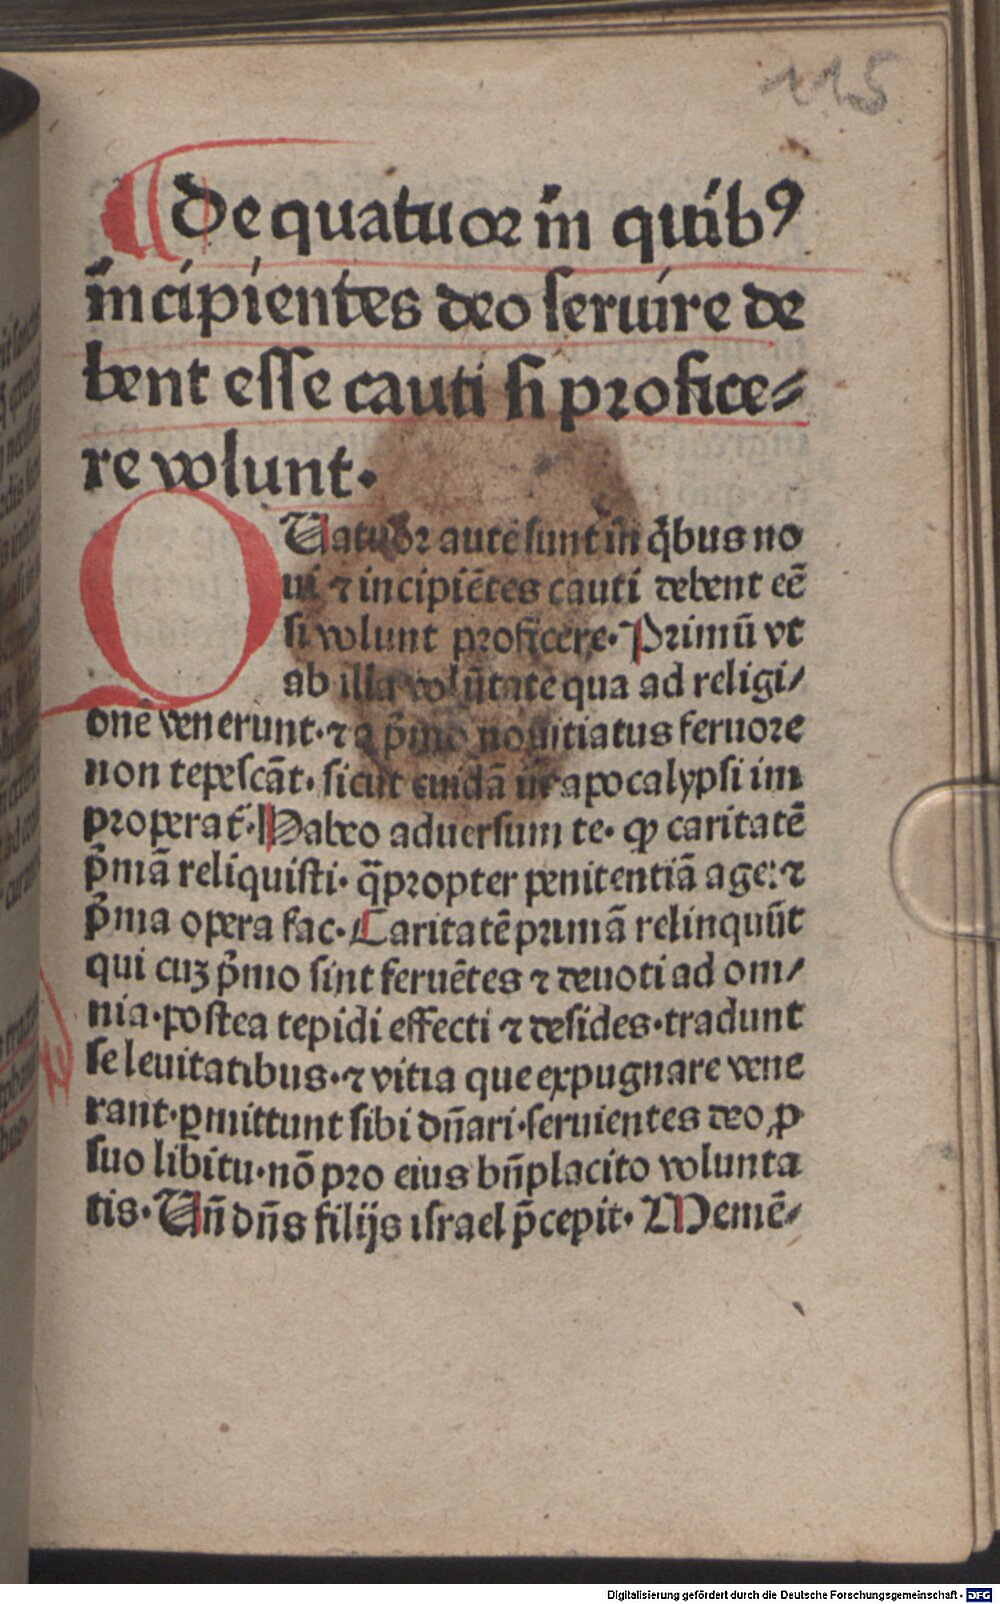 115
De quatuor in quibꝰ
incipientes deo seruire de
bent esse cauti si profice⸗
re volunt.
QUatuor autē sunt in q̈bus no
ui ⁊ incipiētes cauti debent eē
si volunt proficere. Primū vt
ab illa volūtate qua ad religi/
onē venerunt. ⁊ a p̄mo nouitiatus feruore
non tepescāt. sicut cuidā in apocalypsi im
properat̄. Habeo aduersum te. ꝙ caritatē
p̄mā reliquisti. q̈propter penitentiā age: ⁊
p̄ma opera fac. Caritatē primā relinquūt
qui cuꝫ p̄mo sint feruētes ⁊ deuoti ad om/
nia. postea tepidi effecti ⁊ desides. tradunt
se leuitatibus. ⁊ vitia que expugnare vene
rant. ꝑmittunt sibi dn̄ari. seruientes deo ꝓ
suo libitu. nō pro eius bn̄placito volunta
tis. Un̄ dn̄s filijs israel p̄cepit. Memē⸗
Digitalisierung gefördert durch die Deutsche Forschungsgemeinschaft - DFG